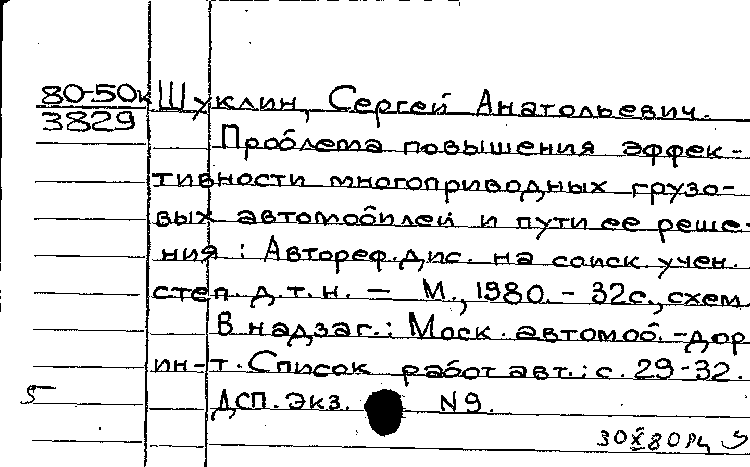 80-50к Шуклин, Сергей Анатольевич.
3829
Проблема повышения эффек-
тивности многоприводных грузо-
вых автомобилей и пути ее реше-
ния : Автореф. дис. на соиск. учен.
степ. д.т.н. — М., 1980. - 32с., схем.
В надзаг.: Моск. автомоб.-дор
ин-т. Список работ авт.: с. 29-32.
ДСП. Экз. N9.
30X80